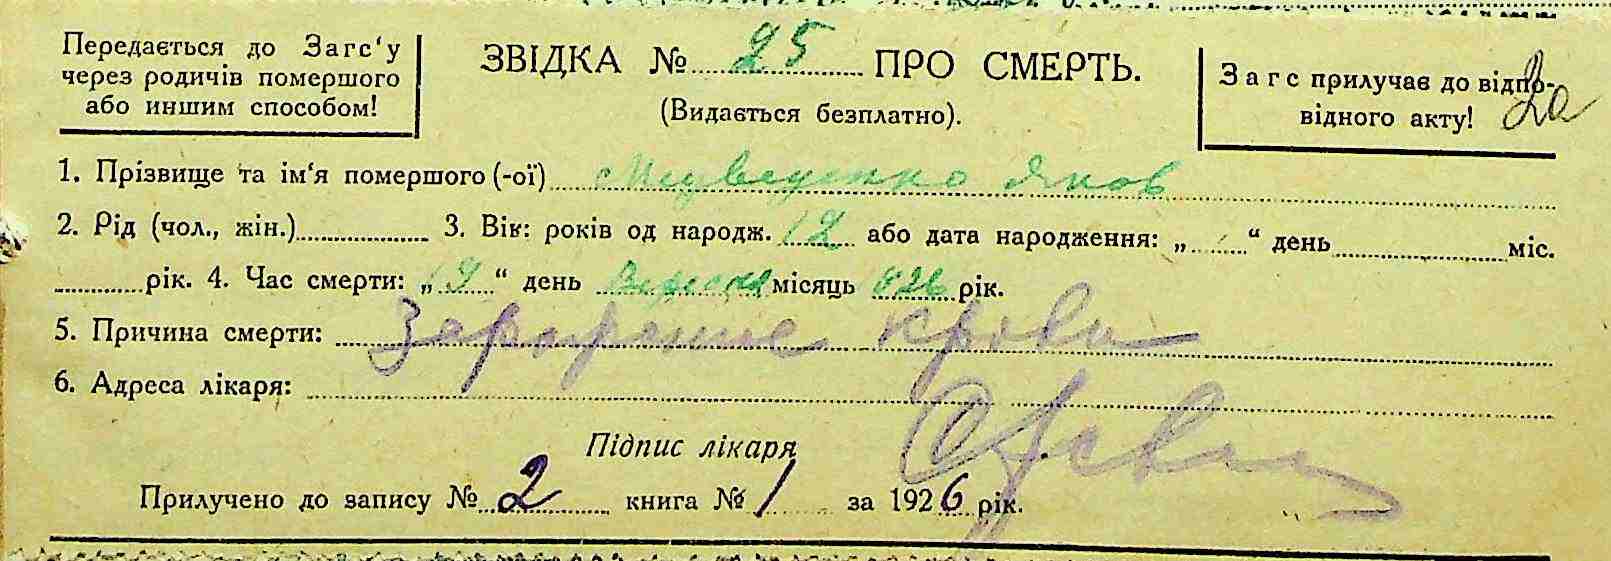 Передається до Загс'у
через родичів помершого
або иншим способом!
ЗВІДКА № 25 ПРО СМЕРТЬ.
(Видається безплатно).
Загс прилучає до відпо-
відного акту!
2а
1. Прізвище та ім'я помершого (-ої) Яков
2. Рід (чол., жін.) 3. Вік: років од народж. 12 або дата народження: „ “ день міс.
рік. 4. Час смерти: „19“ день місяць 926 рік.
5. Причина смерти: Заражение крови
6. Адреса лікаря:
Підпис лікаря
Прилучено до запису № 2 книга № 1 за 1926 рік.